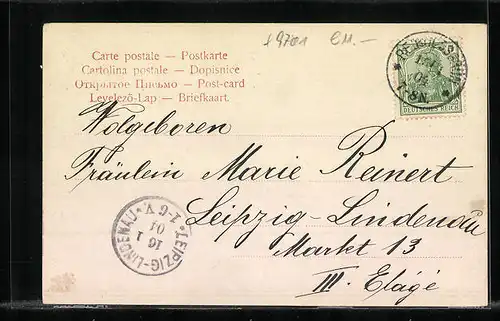 +9781 €11.-
Carte postale — Postkarte
Cartolina postale — Dopisnice
Открытое Письмо — Post-card
Levelező-Lap — Briefkaart.
DEUTSCHES REICH
Wolgeboren
Fräulein Marie Reinert
Leipzig-Lindenau
Markt 13
III. Etágé
LEIPZIG-LINDENAU
16 1
04
7-8 V.